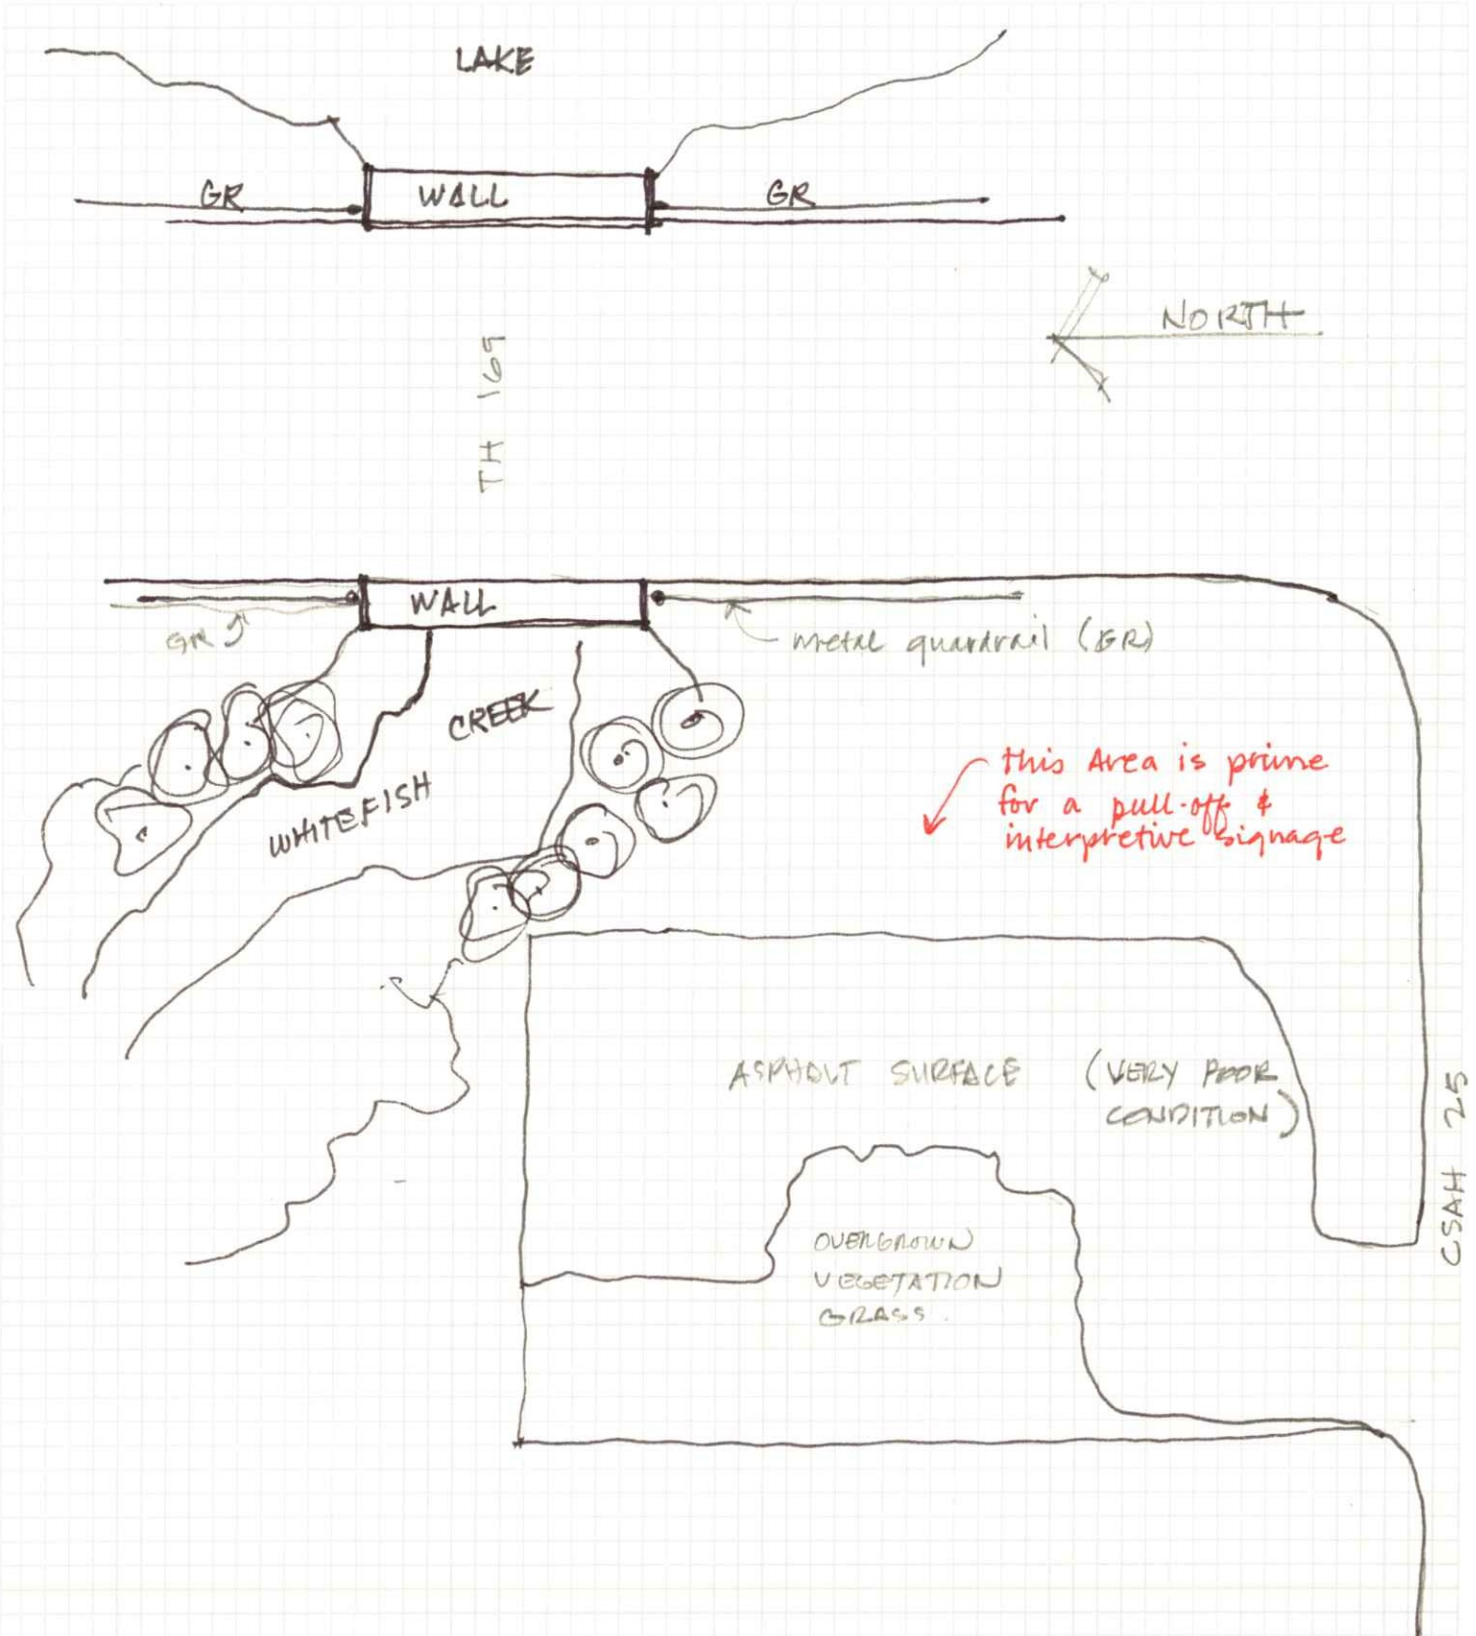 LAKE
GR
WALL
GR
NORTH
TH 169
WALL
GR
metal guardrail (GR)
CREEK
WHITEFISH
this Area is prime
for a pull-off &
interpretive signage
ASPHALT SURFACE (VERY POOR
CONDITION)
CSAH 25
OVERGROWN
VEGETATION
GRASS.